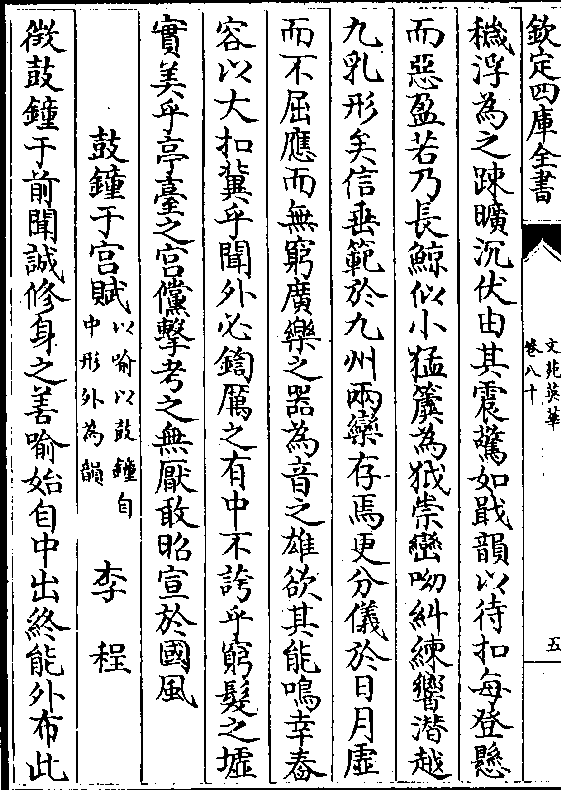 欽定四庫全書
文苑英華
卷八十
五
穢浮為之踈曠沉伏由其震驚如戢韻以待扣每登懸
而惡盈若乃長鯨似小猛簴為娀崇巒呦糾練響潛越
九乳形矣信垂範於九州兩欒存焉更分儀於日月虛
而不屈應而無窮廣樂之器為音之雄欲其能鳴幸舂
容以大扣冀乎聞外必鍧厲之有中不誇乎窮髮之墟
實美乎亭臺之宫儻擊考之無厭敢昭宣於國風
鼓鐘于宫賦以喻以鼓鐘自中形外為韻 李程
徴鼓鐘于前聞誠修身之善喻始自中出終能外布此